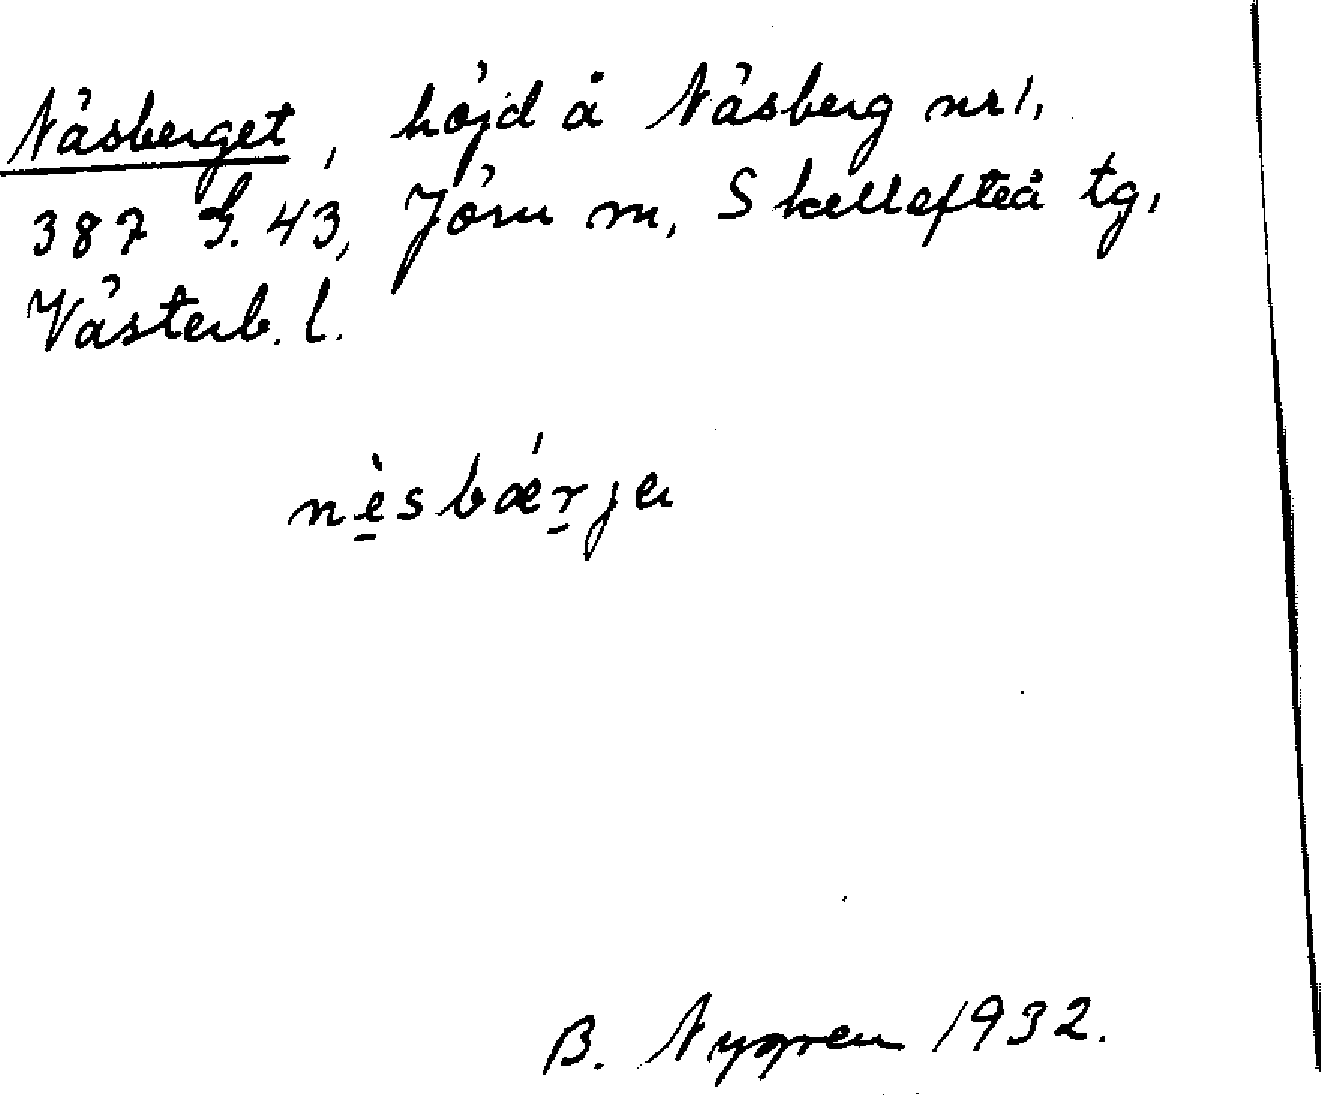 Näsberget, höjd å Näsberg nr 1,
387 G. 43, Jörn sn, Skellefteå tg,
Västerb. l.
nè̱sbǽr̠ja
B. Nygren 1932.